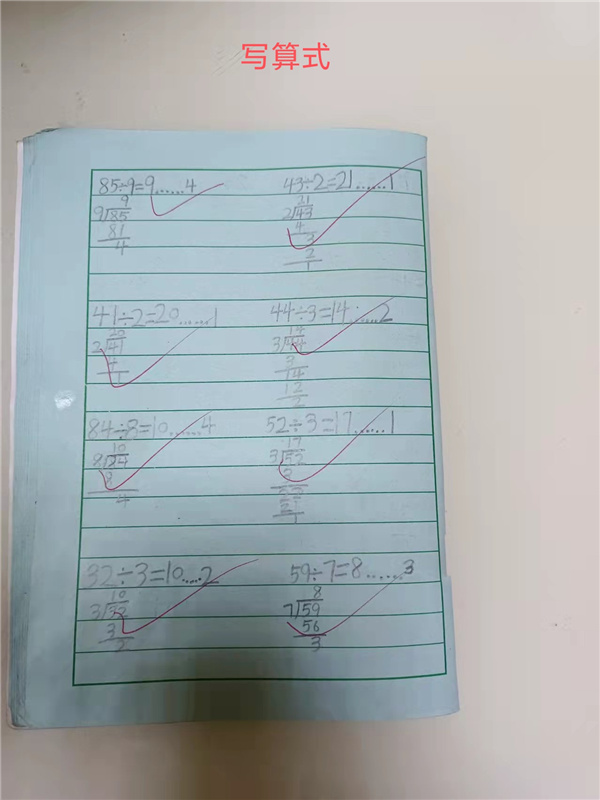 写算式
85÷9=9......4
43÷2=21......1
9
9 85
81
4
21
2 43
4
3
2
1
41÷2=20......1
44÷3=14......2
20
2 41
4
1
14
3 44
3
14
12
2
84÷8=10......4
52÷3=17......1
10
8 84
8
4
17
3 52
3
22
21
1
32÷3=10....2
59÷7=8......3
10
3 32
3
2
8
7 59
56
3